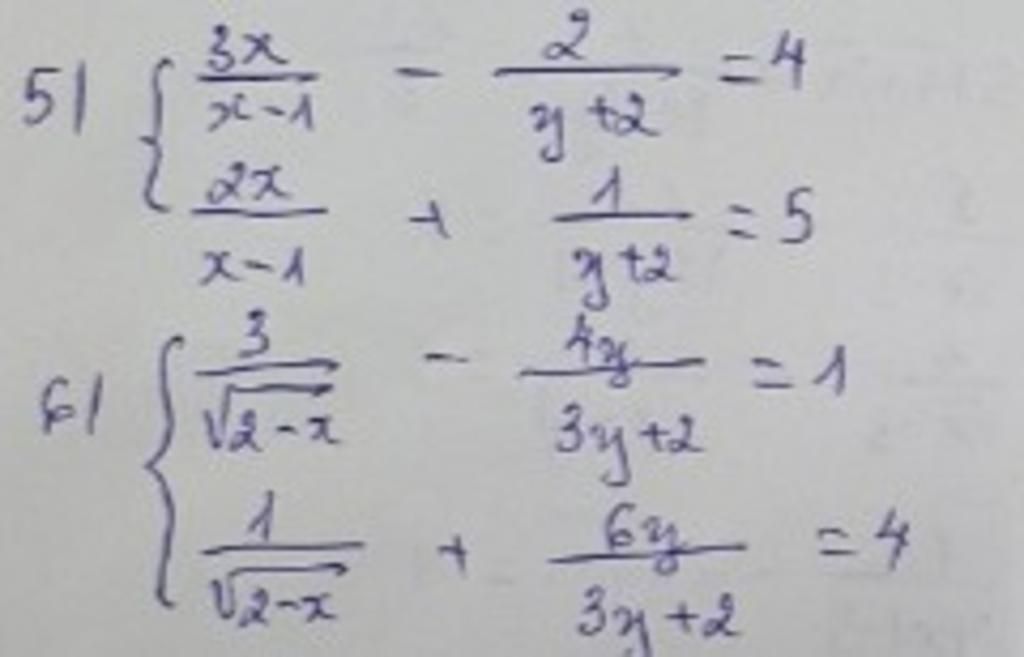 5) { 3x/(x-1) - 2/(y+2) = 4
2x/(x-1) + 1/(y+2) = 5
6) { 3/√(2-x) - 4y/(3y+2) = 1
1/√(2-x) + 6y/(3y+2) = 4